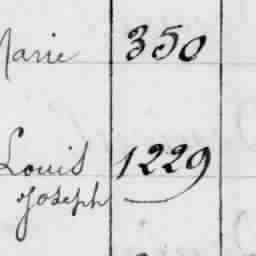 Marie 350
Louis 1229
Joseph